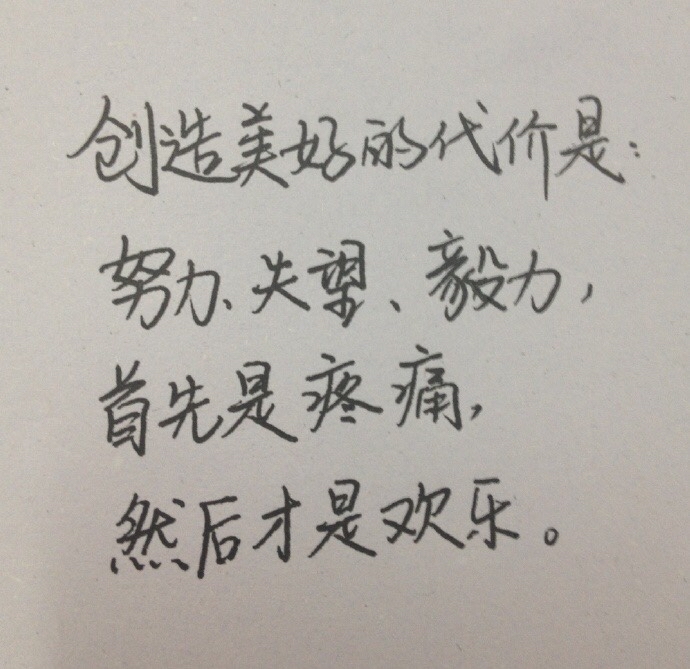 创造美好的代价是:
努力、失望、毅力,
首先是疼痛,
然后才是欢乐。